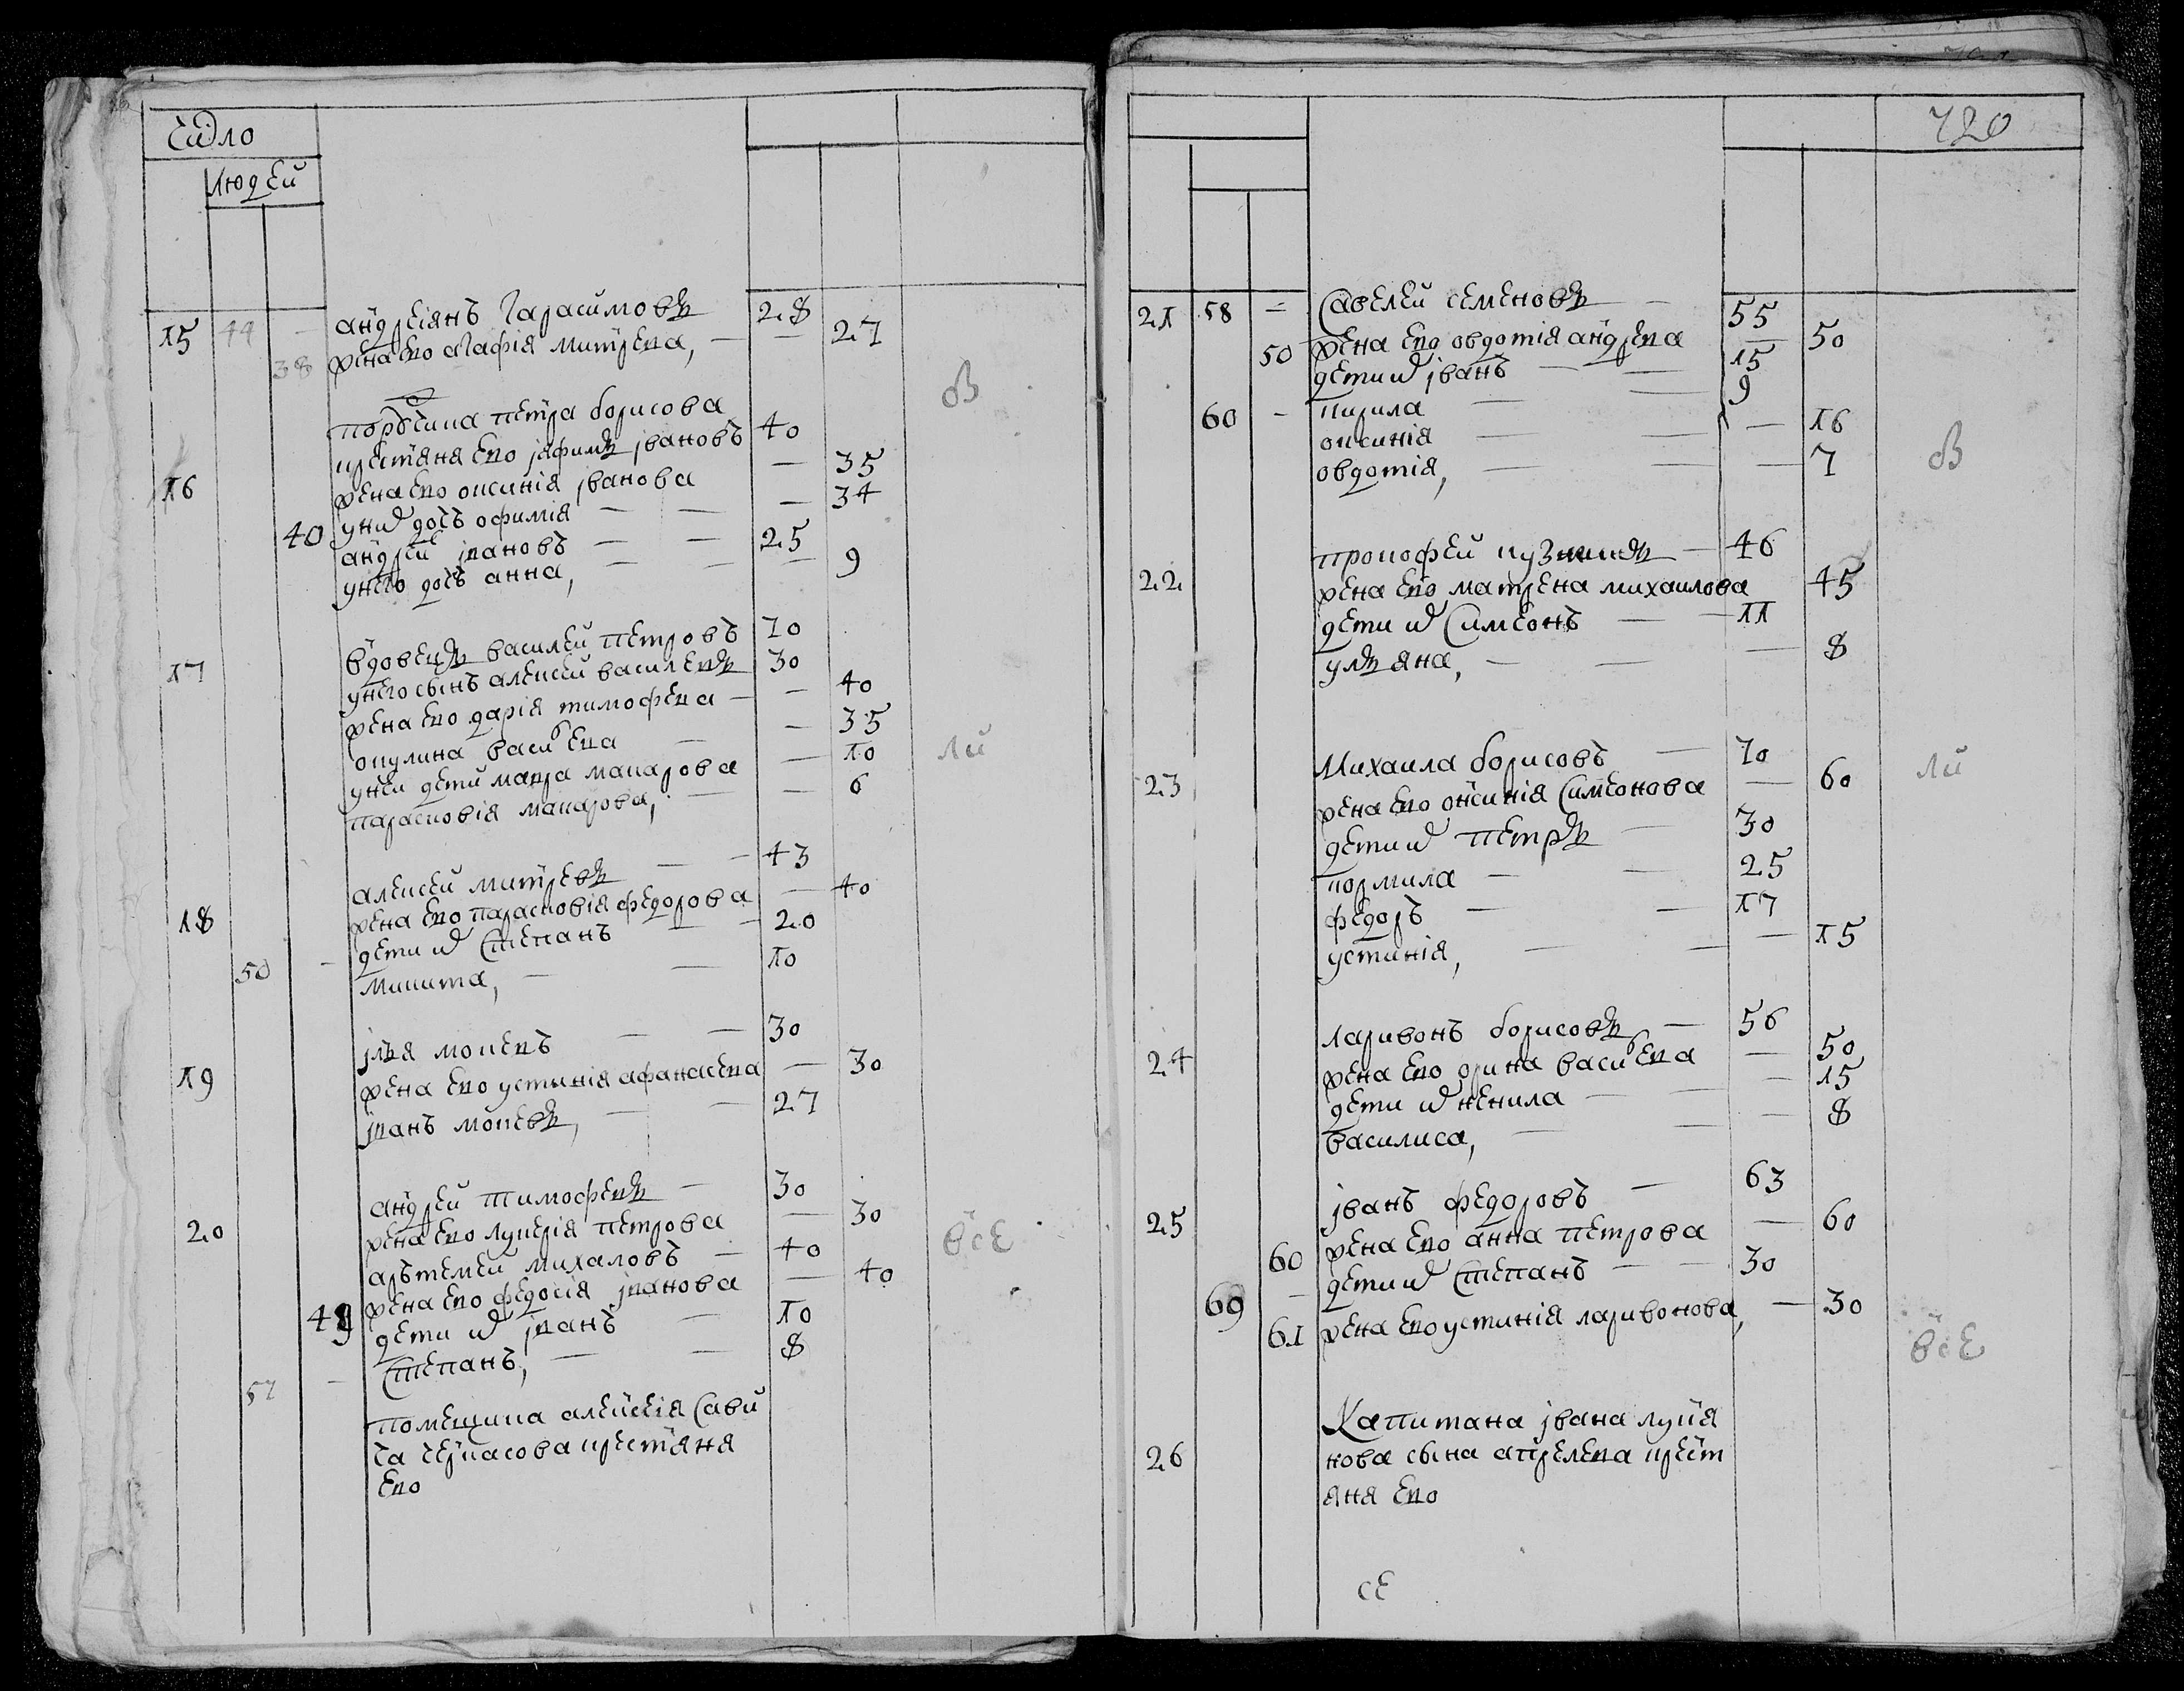 Число
людей
15 44 – андреянъ гарасимовъ – 28
38 жена ево агафия митрева, – – 27
порутчика петра борисова
16 крестьяня ево ѣфимъ ивановъ 40
жена ево оксиния иванова – 35
40 у них дочь офимия – – 34
андрей ивановъ – – 25
у него дочь анна, – – 9
об
17 вдовецъ василей петровъ 70
у него сынъ алексей васильевъ 30
жена ево дария тимофева – – 40
окулина васильева – – 35
у ней дети мавра макарова – 10
парасковия макарова, – – 6
ли
18 алексей митревъ – – 43
жена ево парасковия федорова – 40
дети их степанъ – 20
50 – микита, – – 10
19 илья мокевъ – – 30
жена ево устиния афанасева – 30
иванъ мокевъ, – – 27
20 андрей тимофевъ – 30
жена ево лукерия петрова – 30
артемей михаловъ – 40
жена ево федосия иванова – 40
49 дети их иванъ – 10
57 – степанъ, – – 8
все
помещика алексея сави
ча черкасова крестьяня
ево
720
21 58 – савелей семеновъ – 55
50 жена ево овдотия андрева – 50
дети их иванъ – – 15
60 – кирила – – 9
оксиния – – – 16
овдотия, – – – 7
об
22 прокофей кузминъ – 46
жена ево матрена михаилова 45
дети их симеонъ – – 11
ульяна, – – – 8
23 михаила борисовъ – 70
жена ево оксиния симеонова – 60
дети их петръ – 30
кормила – – 25
федоръ – – 17
устиния, – – – 15
ли
24 ларивонъ борисовъ – 56
жена ево орина васильева – 50
дети их ненила – – – 15
василиса, – – – 8
25 иванъ федоровъ – 63
60 жена ево анна петрова – 60
69 – дети их степанъ – – 30
61 жена ево устиния ларивонова, – 30
все
26 Капитана ивана лукья
нова сына апрелева крест
яня ево
се